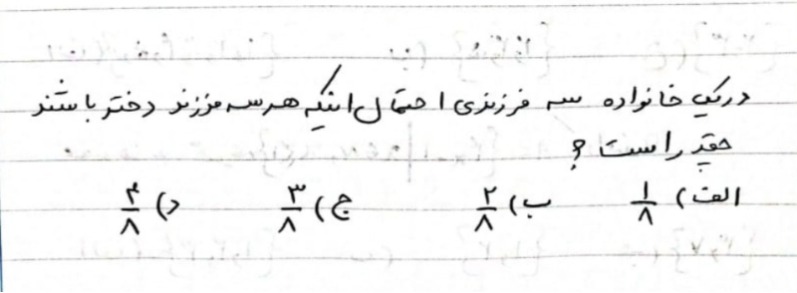 در یک خانواده سه فرزندی احتمال اینکه هر سه فرزند دختر باشند
چقدر است؟
الف) ۱/۸ ب) ۲/۸ ج) ۳/۸ د) ۴/۸